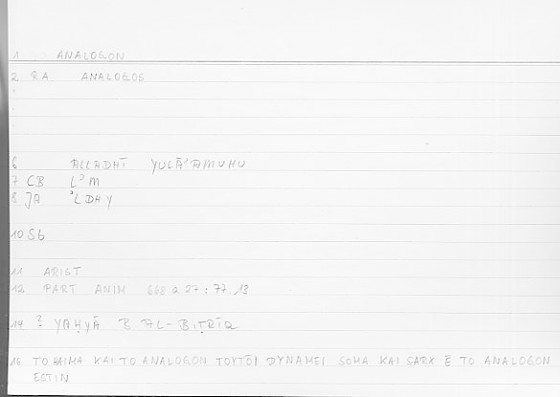 1 ANALOGON
2 RA ANALOGOS
6 ALLADHĪ YULĀ'AMUHU
7 CB L'M
8 JA 'LDHY
10 Sb
11 ARIST
12 PART ANIM 668 a 27 : 77.13
14 ? YAḤYĀ B AL-BIṬRĪQ
16 TO HAIMA KAI TO ANALOGON TOYTŌI DYNAMEI SOMA KAI SARX Ē TO ANALOGON
ESTIN